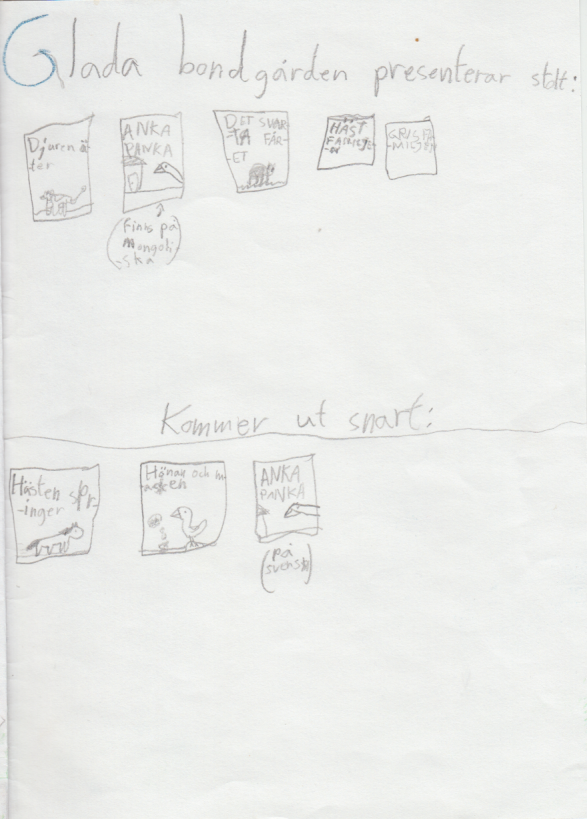 Glada bondgården presenterar stolt:
Djuren ä-
-ter
ANKA
PANKA
(Finns på
Mongoli-
-ska)
DET SVAR-
-TA FÅR-
-ET
HÄST
FAMILJE-
-N
GRISFA-
MILJEN
Kommer ut snart:
Hästen spr-
-inger
Hönan och m-
-asken
ANKA
PANKA
(på
svenska)